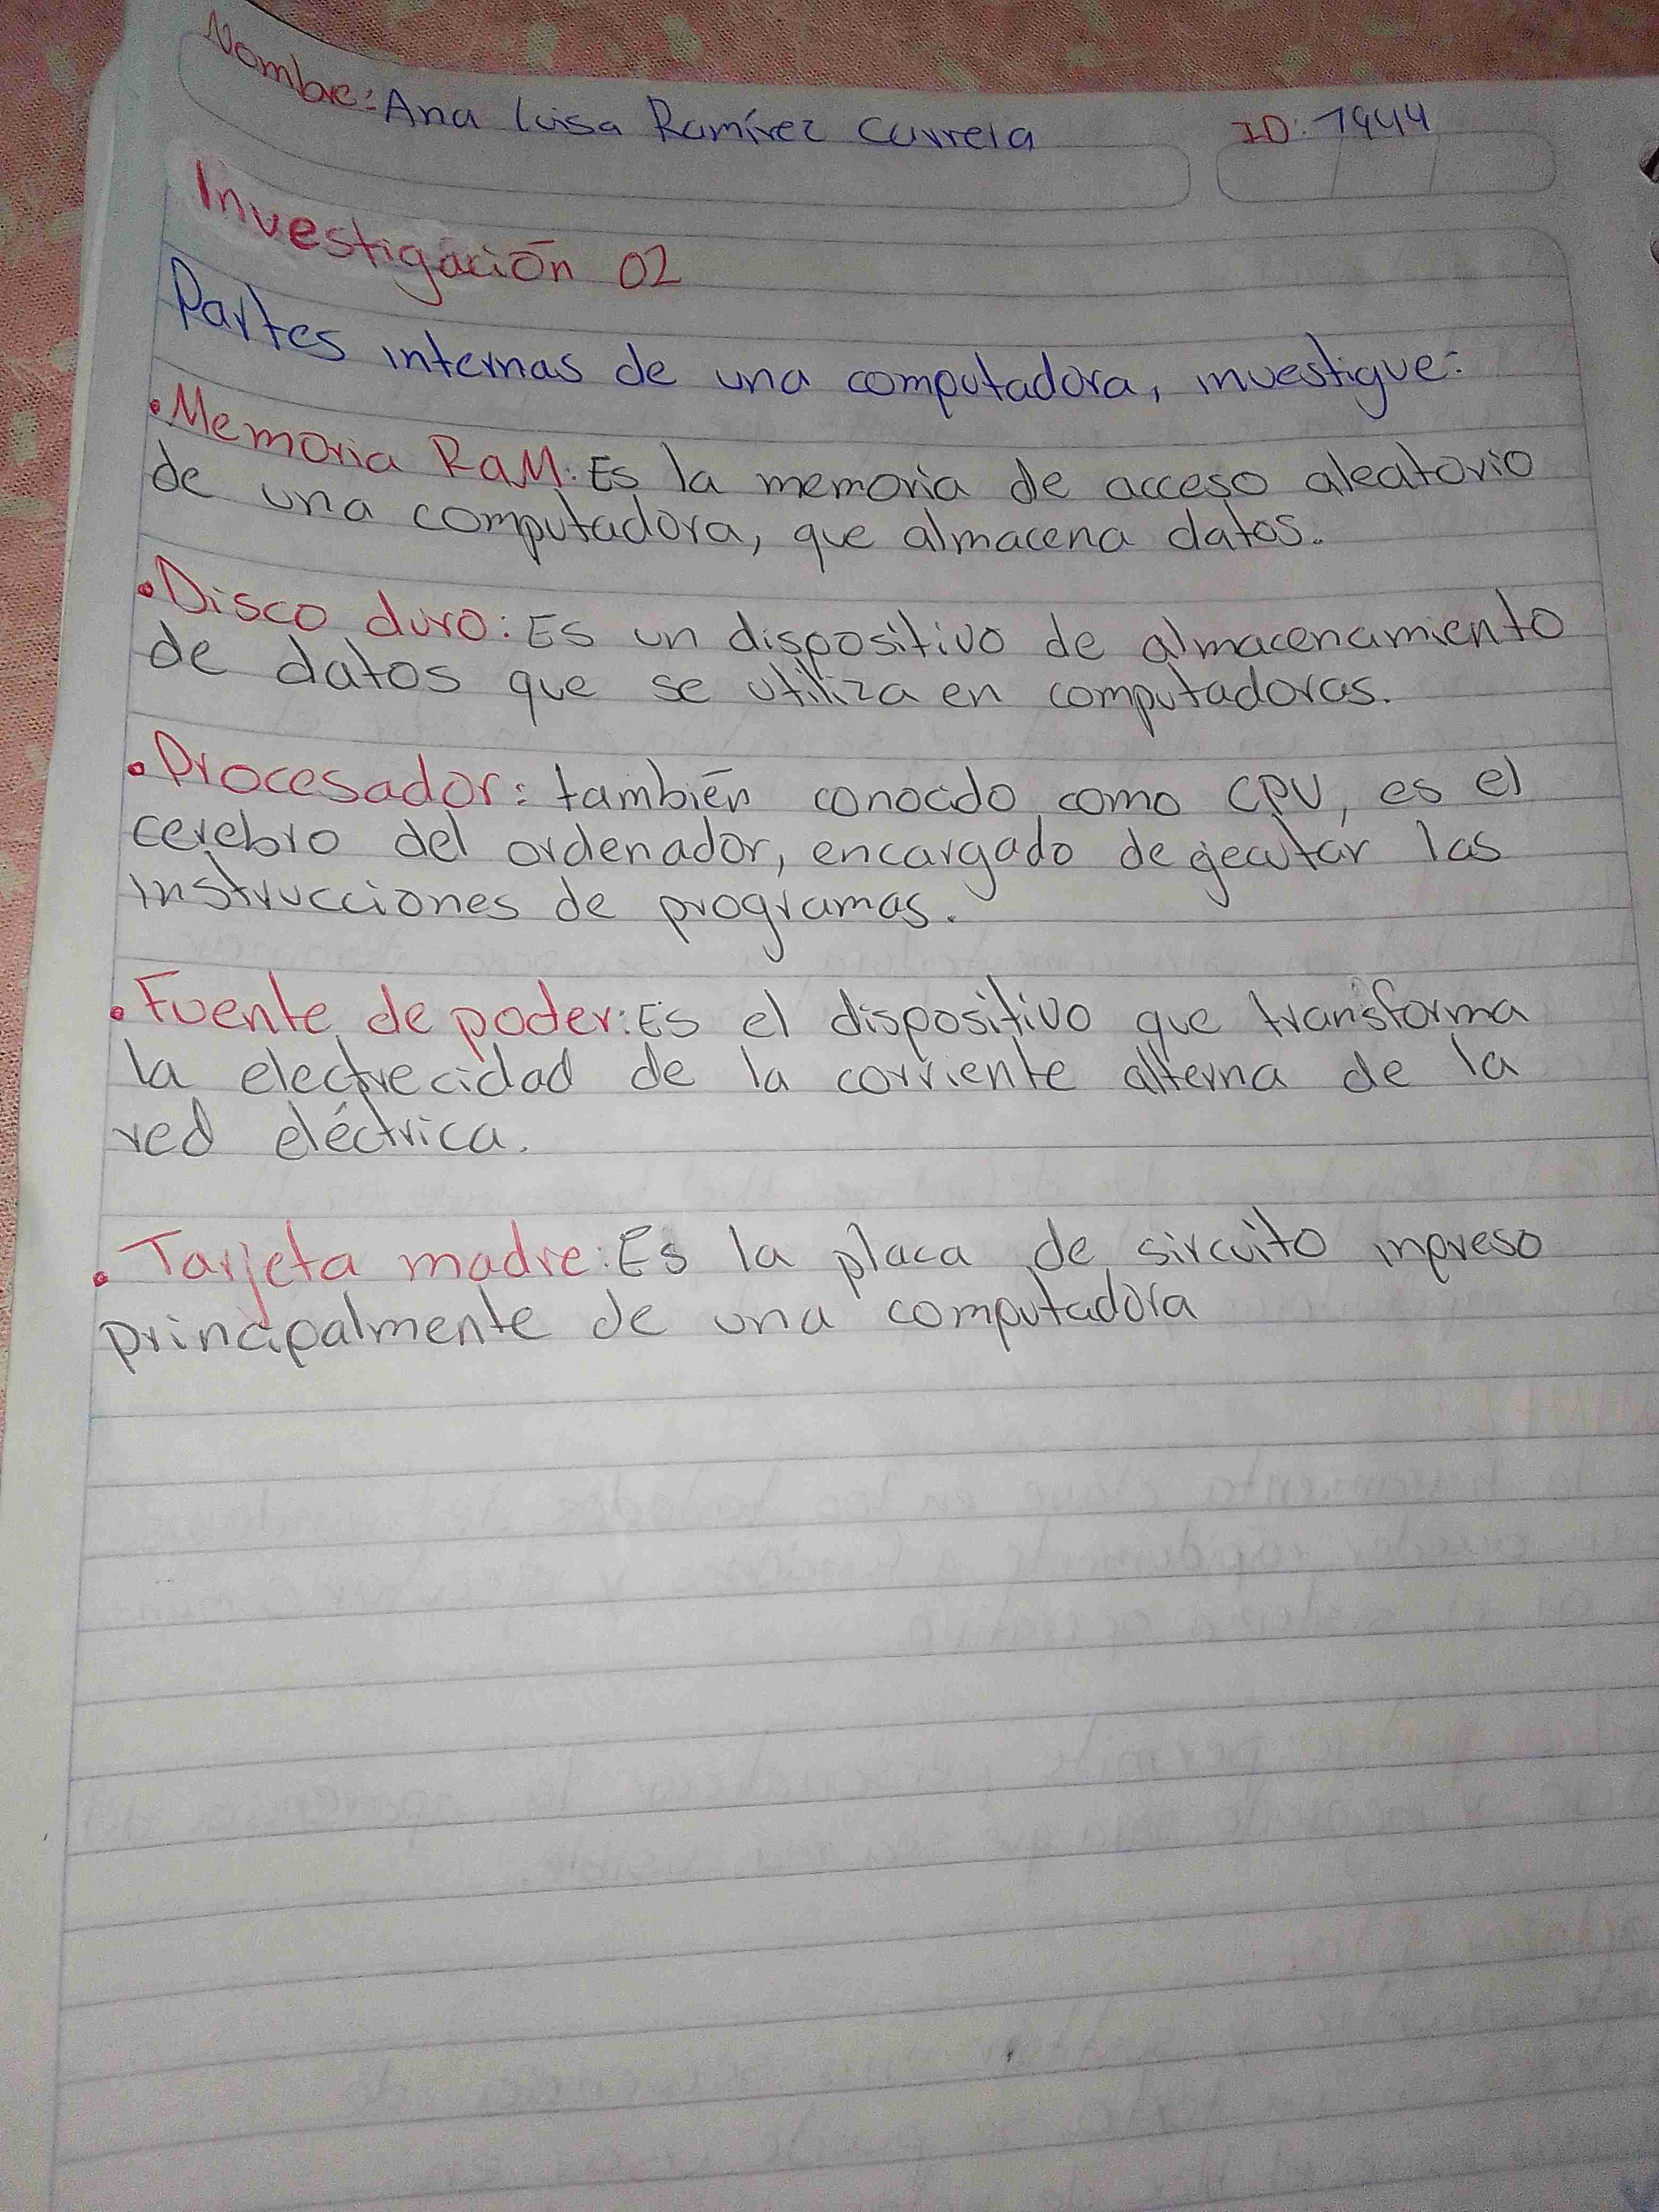 Nombre: Ana Luisa Ramírez Carrera ID: 1944
Investigación 02
Partes internas de una computadora, investigue:
• Memoria RaM: Es la memoria de acceso aleatorio
de una computadora, que almacena datos.
• Disco duro: Es un dispositivo de almacenamiento
de datos que se utiliza en computadoras.
• Procesador: también conocido como CPU, es el
cerebro del ordenador, encargado de gecutar las
instrucciones de programas.
• Fuente de poder: Es el dispositivo que transforma
la electrecidad de la corriente alterna de la
red eléctrica.
• Tarjeta madre: Es la placa de sircuito inpreso
principalmente de una computadora